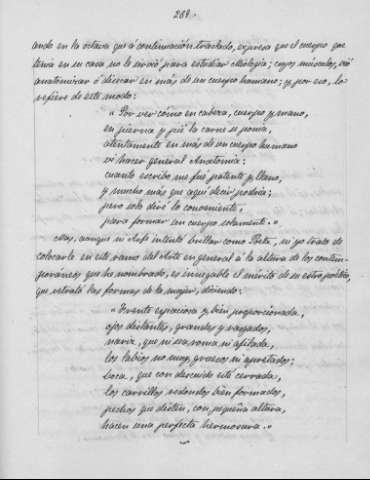 289.
ando en la octava que á continuacion traslado, expresa que el cuerpo que
tenia en su casa no le sirvió para estudiar Miología; cuyos músculos, vió
anatomizar ó disecar en más de un cuerpo humano; y por eso, lo
refiere de este modo:
"Por ver cómo en cabeza, cuerpo y mano,
en pierna y pié la carne se ponia,
atentamente en más de un cuerpo humano
vi hacer general Anatomia:
cuanto escribo me fué patente y llano,
y mucho más que aquí decir podria;
pero solo diré lo conveniente,
para formar un cuerpo solamente."
Mas, aunque ni Arfe intentó brillar como Poeta, ni yo trato de
colocarle en este ramo del Arte en general á la altura de los contem-
poráneos que he nombrado, es innegable el mérito de su estro poético,
que retrató las formas de la mujer, diciendo:
"Frente espaciosa y bien proporcionada,
ojos distantes, grandes y rasgados,
nariz, que ni sea roma ni afilada,
los labios no muy gruesos ni apretados;
boca, que con descuido esté cerrada,
los carrillos redondos bien formados,
pechos que disten, con pequeña altura,
hacen una perfecta hermosura."